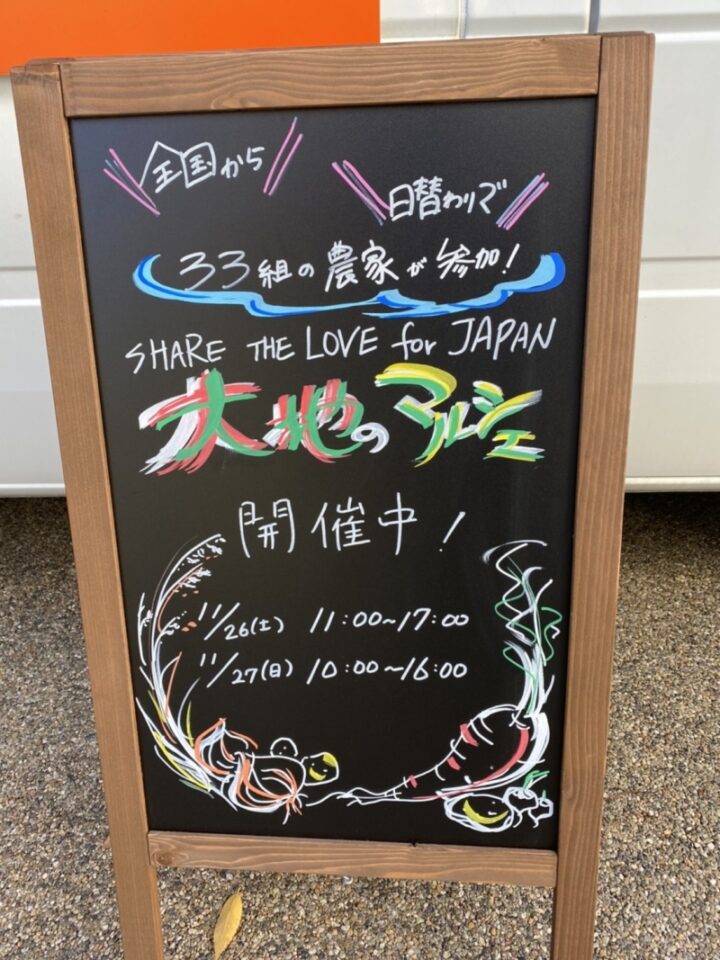 全国から
日替わりで
33組の農家が参加!
SHARE THE LOVE for JAPAN
大地のマルシェ
開催中!
11/26(土) 11:00~17:00
11/27(日) 10:00~16:00